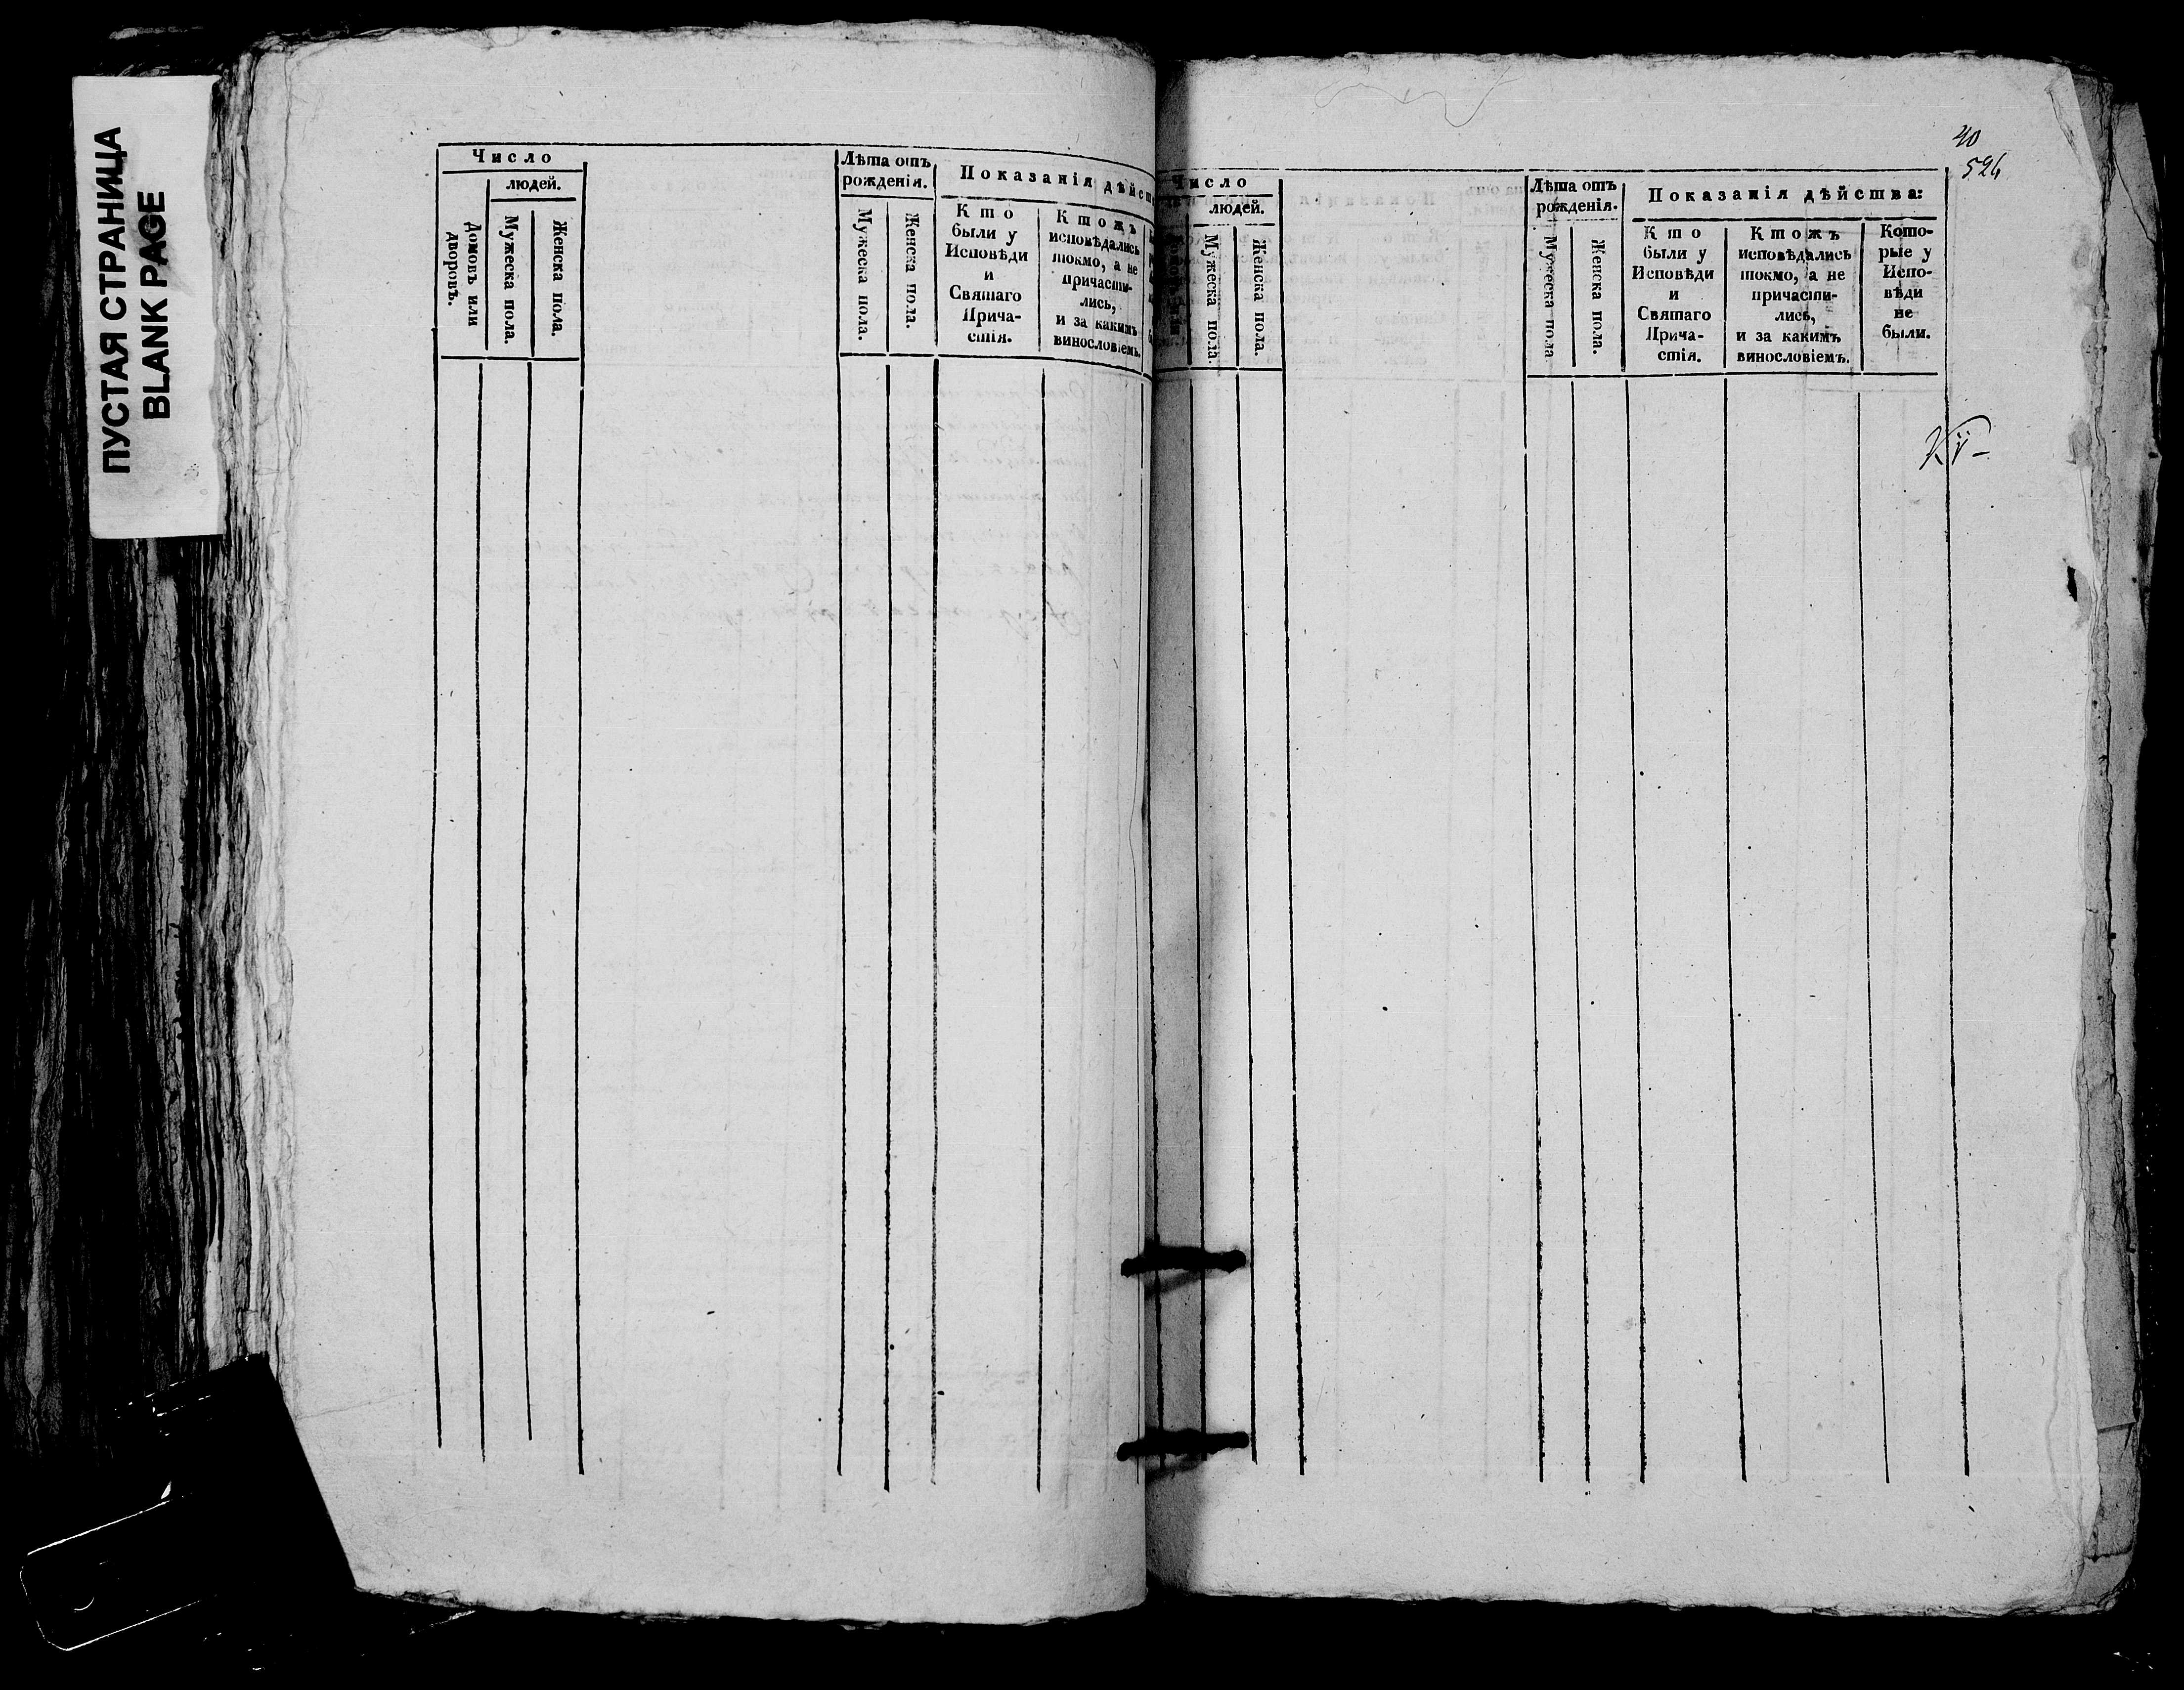 ПУСТАЯ СТРАНИЦА
BLANK PAGE
Число
людей.
Домовъ или
дворовъ.
Мужеска пола.
Женска пола.
Лѣта отъ
рожденія.
Мужеска пола.
Женска пола.
Показанія
Кто
были у
Исповѣди
и
Святаго
Прича-
стія.
Ктожъ
исповѣдались
токмо, а не
причасти-
лись,
и за какимъ
винословіемъ.
40
526
Число
людей.
Мужеска пола.
Женска пола.
Лѣта отъ
рожденія.
Мужеска пола
Женска пола.
Показанія дѣйства:
Кто
были у
Исповѣди
и
Святаго
Прича-
стія.
Ктожъ
исповѣдались
токмо, а не
причасти-
лись,
и за какимъ
винословіемъ.
Кото-
рые у
Испо-
вѣди
не
были.